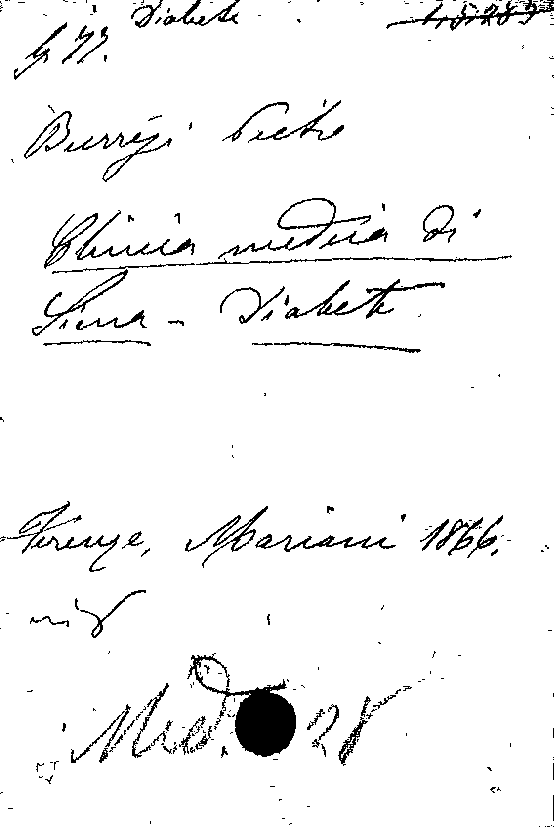 Diabete
G 77.
Burresi Pietro
Clinica medica di
Siena - Diabete.
Firenze, Mariani 1866.
in 8
Med. 28